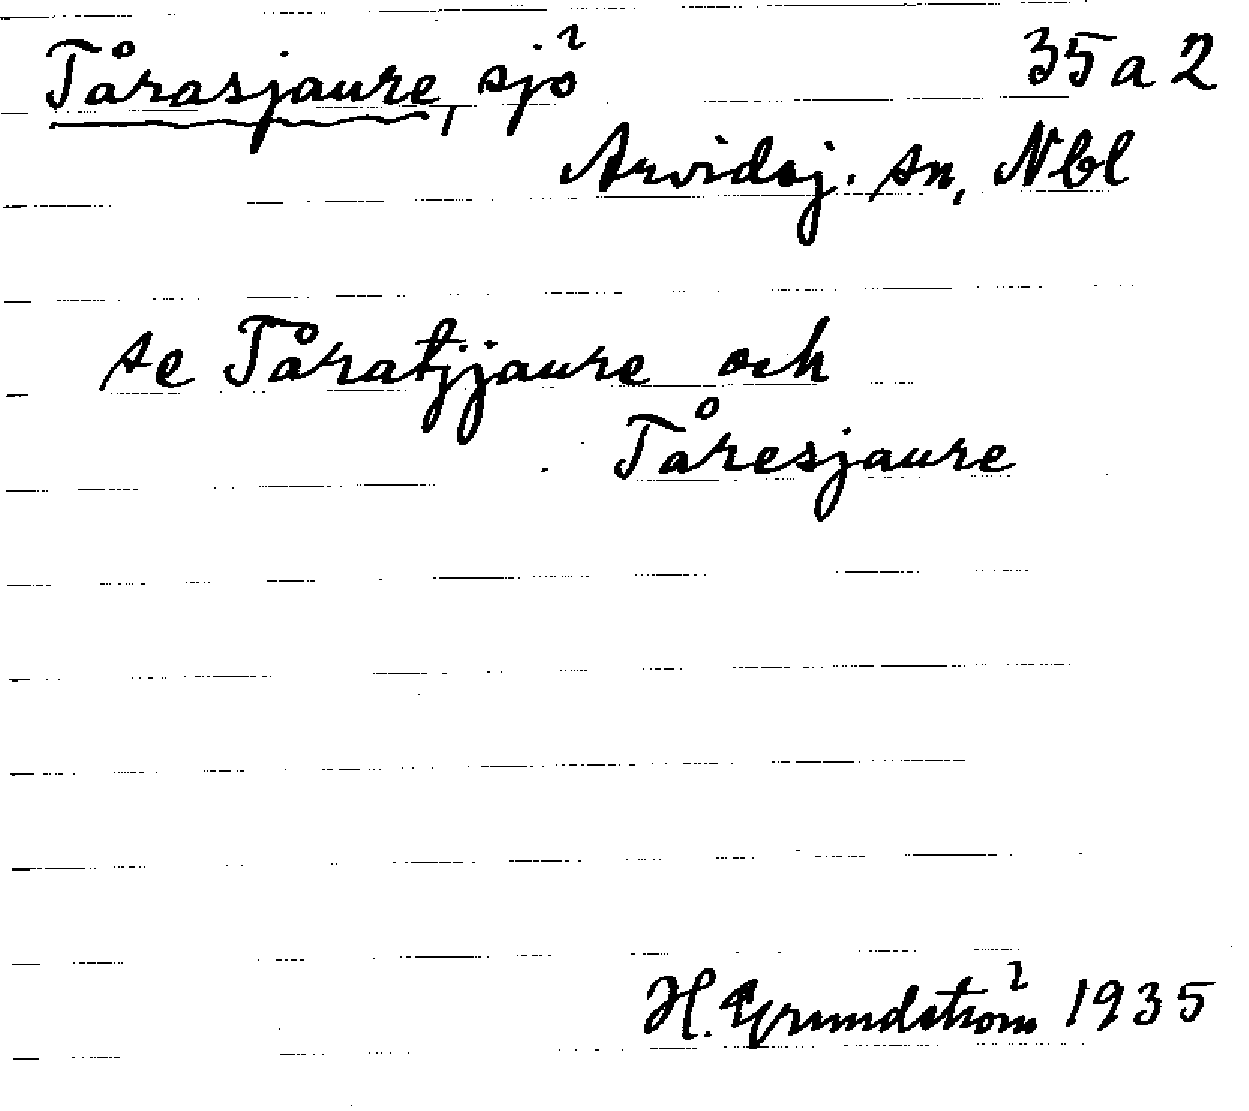 Tårasjaure, sjö 35a2
Arvidsj. sn, Nbl
se Tåratjjaure och
Tåresjaure
H. Grundström 1935